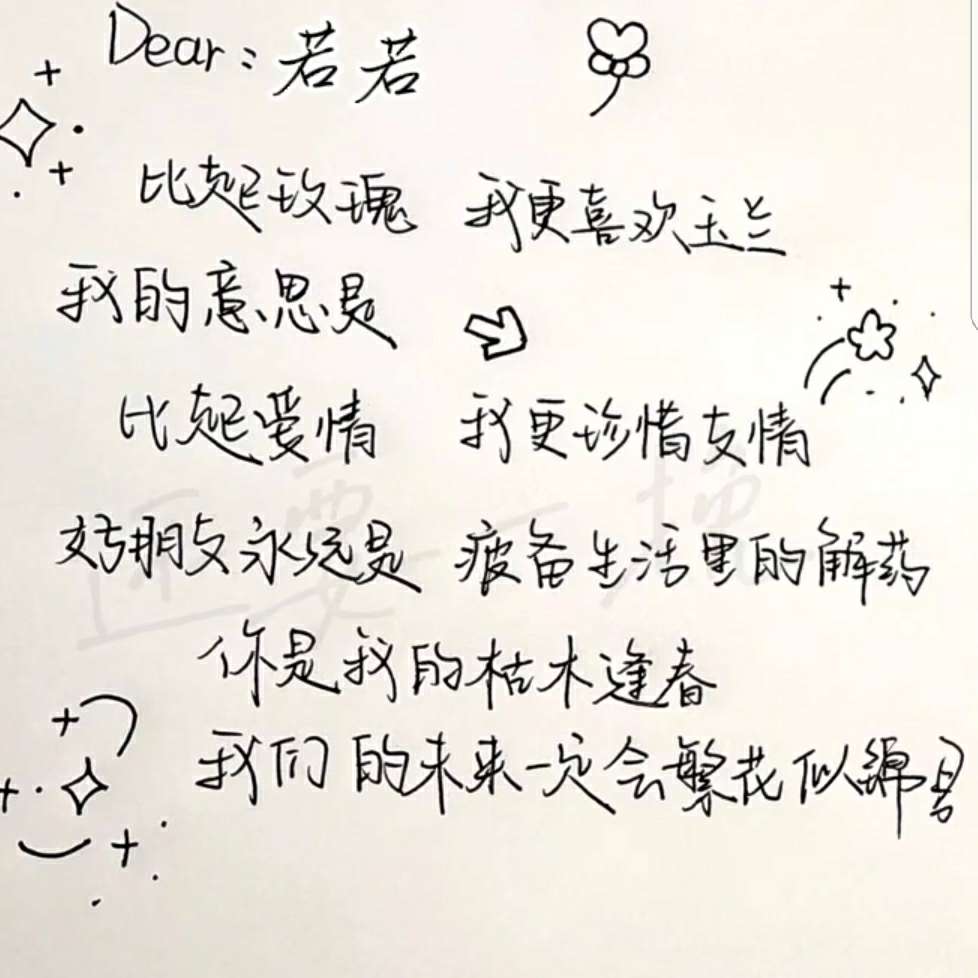 Dear：若若
比起玫瑰 我更喜欢玉兰
我的意思是
比起爱情 我更珍惜友情
好朋友永远是 疲备生活里的解药
你是我的枯木逢春
我们的未来一定会繁花似锦
还要一摞